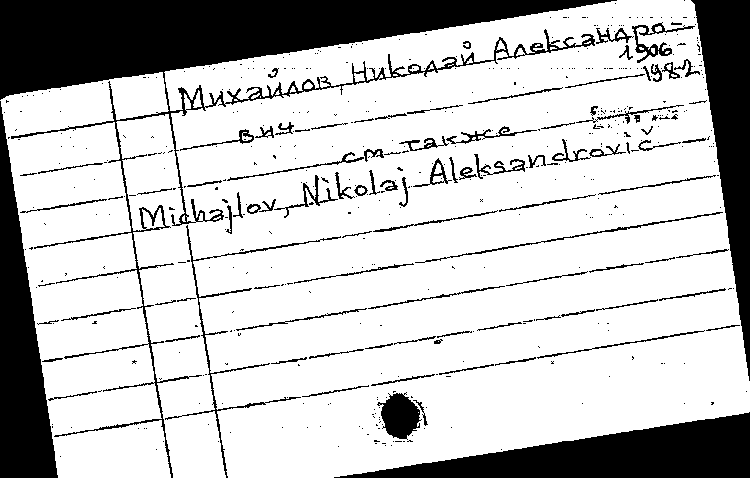 Михайлов, Николай Александро-
1906-
1982
вич
см также
Michajlov, Nikolaj Aleksandrovič